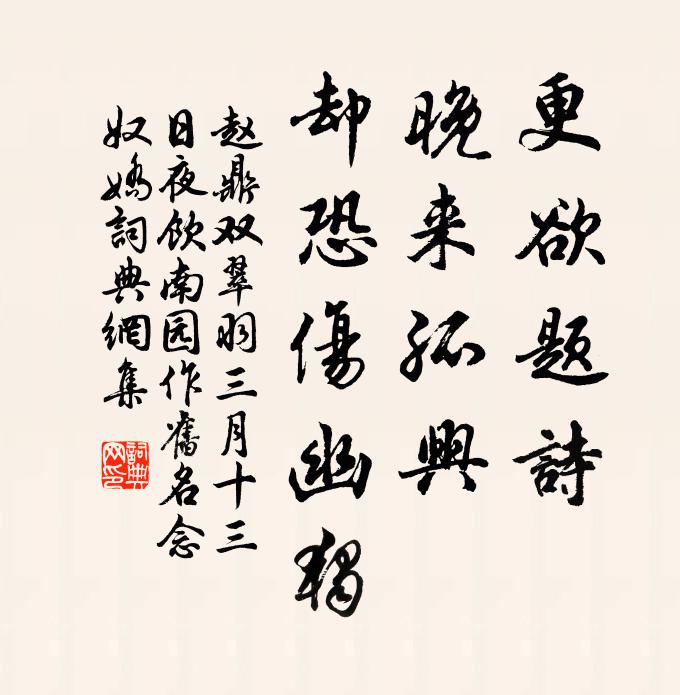 更欲题詩
晚来孤興
却恐傷幽獨
赵鼎双翠羽三月十三
日夜飲南园作舊名念
奴嬌詞典網集
詞典
网印